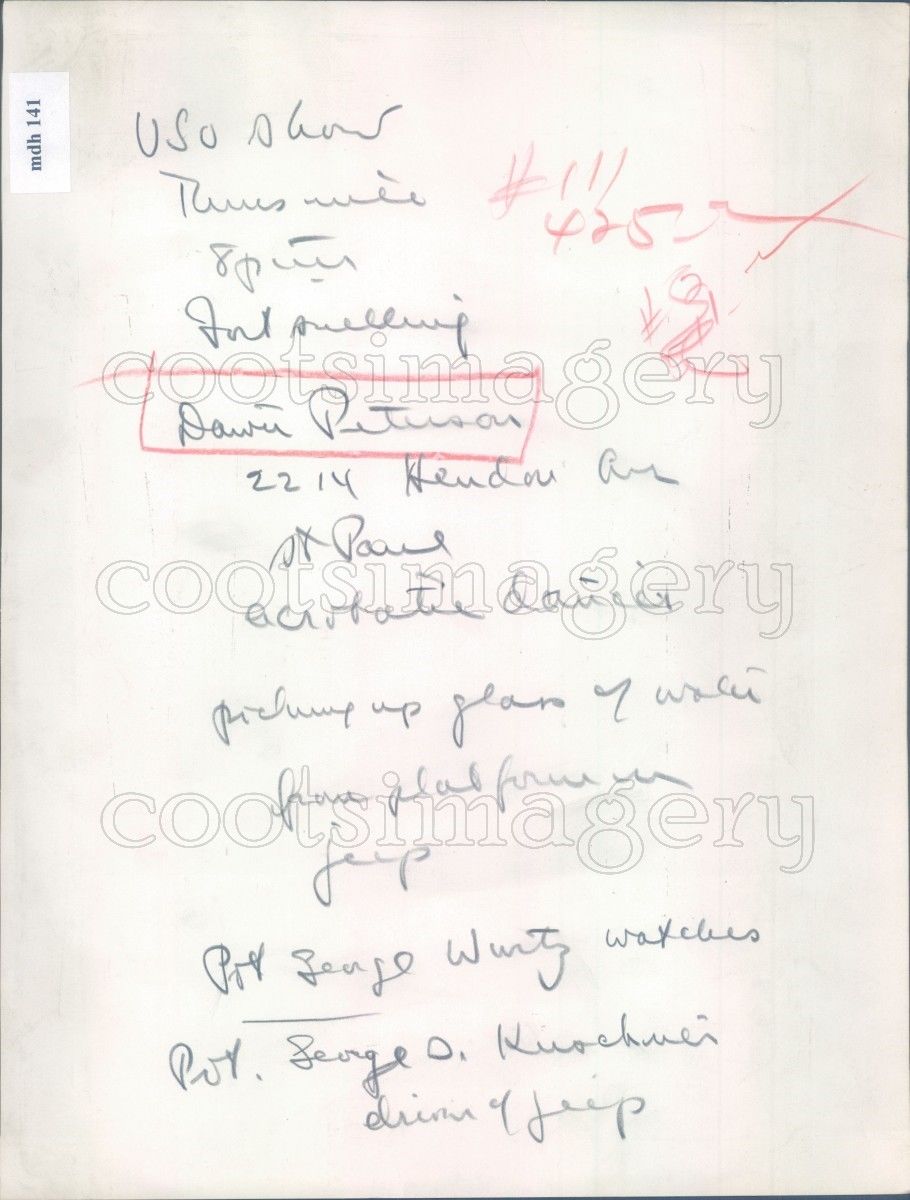 mdh 141
USO show
Thurs nite
8pm
# 111
425
Fort Snelling
Peterson
2214 Hendon Ave
St Paul
acrobatic dancer
picking up glass of water
from platform on
jeep
Pvt George Wurtz watches
Pvt. George D.
driver of jeep
cootsimagery
cootsimagery
cootsimagery